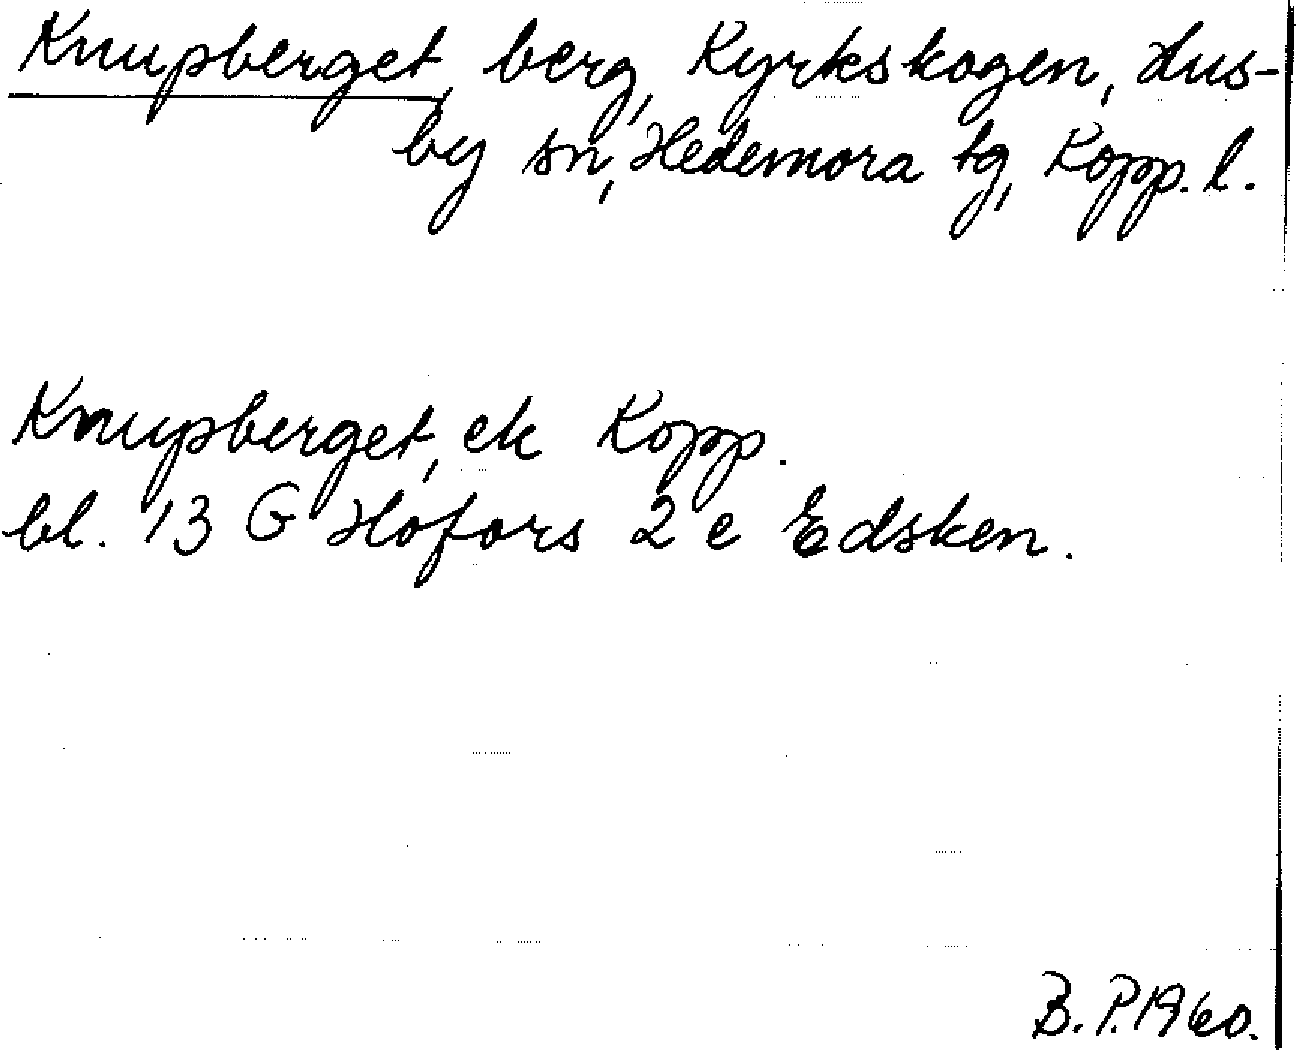 Knupberget, berg, Kyrkskogen, Hus-
by sn, Hedemora tg, Kopp. l.
Knupberget, ek Kopp.
bl. 13 G Hofors 2 c Edsken.
B. P. 1960.